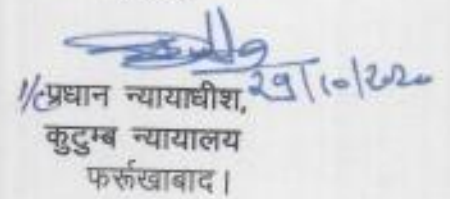 29/10/2020
I/c प्रधान न्यायाधीश,
कुटुम्ब न्यायालय
फर्रूखाबाद।